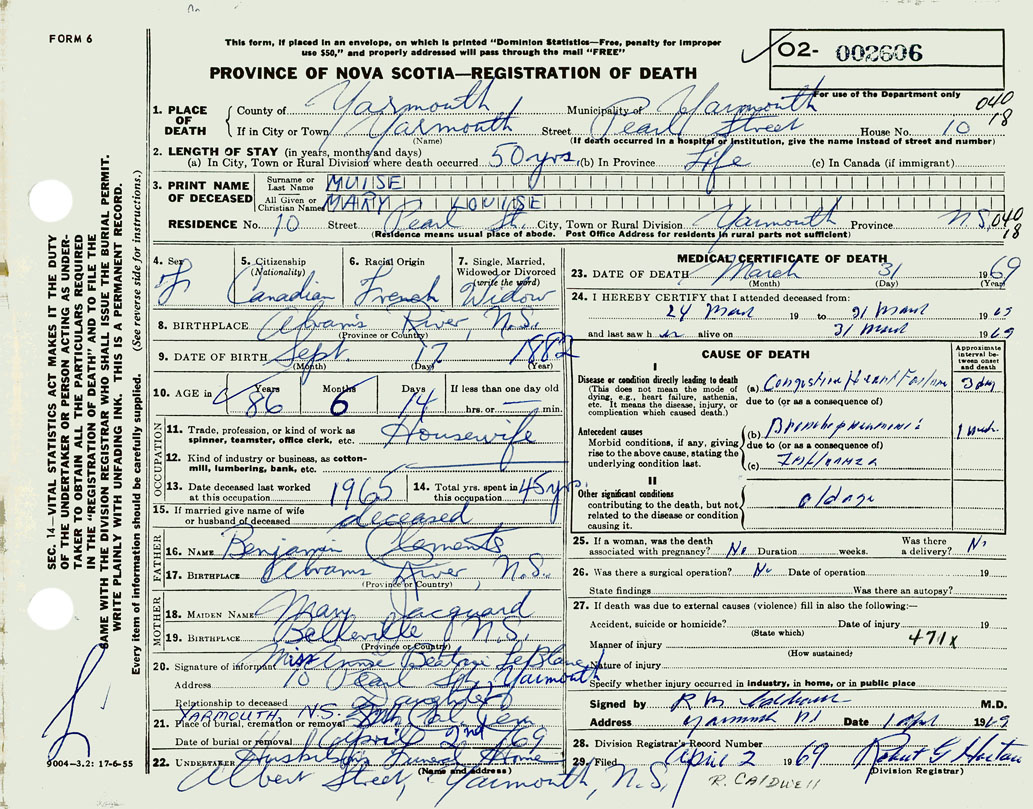 FORM 6
This form, if placed in an envelope, on which is printed "Dominion Statistics—Free, penalty for improper
use $50," and properly addressed will pass through the mail "FREE"
O2- 002606
PROVINCE OF NOVA SCOTIA—REGISTRATION OF DEATH
For use of the Department only
040
18
1. PLACE OF DEATH
County of Yarmouth Municipality of Yarmouth
If in City or Town Yarmouth Street Pearl Street House No. 10
(Name) (If death occurred in a hospital or institution, give the name instead of street and number)
2. LENGTH OF STAY (in years, months and days)
(a) In City, Town or Rural Division where death occurred 50 yrs (b) In Province Life (c) In Canada (if immigrant)
3. PRINT NAME OF DECEASED
Surname or Last Name MUISE
All Given or Christian Names MARY LOUISE
RESIDENCE No. 10 Street Pearl St. City, Town or Rural Division Yarmouth Province N.S. 040
18
(Residence means usual place of abode. Post Office Address for residents in rural parts not sufficient)
4. Sex F
5. Citizenship (Nationality) Canadian
6. Racial Origin French
7. Single, Married, Widowed or Divorced (write the word) Widow
8. BIRTHPLACE Abrams River, N.S.
(Province or Country)
9. DATE OF BIRTH Sept. 17 1882
(Month) (Day) (Year)
10. AGE in Years 86 Months 6 Days 14 If less than one day old
hrs. or — min.
OCCUPATION
11. Trade, profession, or kind of work as spinner, teamster, office clerk, etc. Housewife
12. Kind of industry or business, as cotton-mill, lumbering, bank, etc.
13. Date deceased last worked at this occupation 1965
14. Total yrs. spent in this occupation 45 yrs.
15. If married give name of wife or husband of deceased deceased
FATHER
16. NAME Benjamin Clements
17. BIRTHPLACE Abrams River, N.S.
(Province or Country)
MOTHER
18. MAIDEN NAME Mary Jacquard
19. BIRTHPLACE Belleville N.S.
(Province or Country)
20. Signature of informant Miss Beatrice LeBlanc
Address 10 Pearl St., Yarmouth
Relationship to deceased Daughter
21. Place of burial, cremation or removal YARMOUTH, N.S. Cem.
Date of burial or removal April 2nd 1969
22. UNDERTAKER Funeral Home
(Name and address)
Albert Street, Yarmouth, N.S.
MEDICAL CERTIFICATE OF DEATH
23. DATE OF DEATH March 31 1969
(Month) (Day) (Year)
24. I HEREBY CERTIFY that I attended deceased from:
24 March 19 to 31 March 1969
and last saw h er alive on 31 March 1969
CAUSE OF DEATH
Approximate interval between onset and death
I
Disease or condition directly leading to death
(This does not mean the mode of dying, e.g., heart failure, asthenia, etc. It means the disease, injury, or complication which caused death.)
(a) Congestive Heart Failure 3 day
due to (or as a consequence of)
Antecedent causes
Morbid conditions, if any, giving rise to the above cause, stating the underlying condition last.
(b) Bronchopneumonia 1 week
due to (or as a consequence of)
(c) Influenza
II
Other significant conditions
contributing to the death, but not related to the disease or condition causing it.
old age
25. If a woman, was the death associated with pregnancy? No Duration weeks. Was there a delivery? No
26. Was there a surgical operation? No Date of operation 19
State findings Was there an autopsy?
27. If death was due to external causes (violence) fill in also the following:—
Accident, suicide or homicide? Date of injury 19
(State which)
Manner of injury 471x
(How sustained)
Nature of injury
Specify whether injury occurred in industry, in home, or in public place
Signed by R M Caldwell M.D.
Address Yarmouth NS Date 1 April 1969
28. Division Registrar's Record Number
29. Filed April 2 1969 Robert G
(Division Registrar)
R. CALDWELL
SEC. 14—VITAL STATISTICS ACT MAKES IT THE DUTY
OF THE UNDERTAKER OR PERSON ACTING AS UNDER-
TAKER TO OBTAIN ALL THE PARTICULARS REQUIRED
IN THE "REGISTRATION OF DEATH" AND TO FILE THE
SAME WITH THE DIVISION REGISTRAR WHO SHALL ISSUE THE BURIAL PERMIT.
WRITE PLAINLY WITH UNFADING INK. THIS IS A PERMANENT RECORD.
Every item of information should be carefully supplied. (See reverse side for instructions.)
9004—3.2: 17-6-55